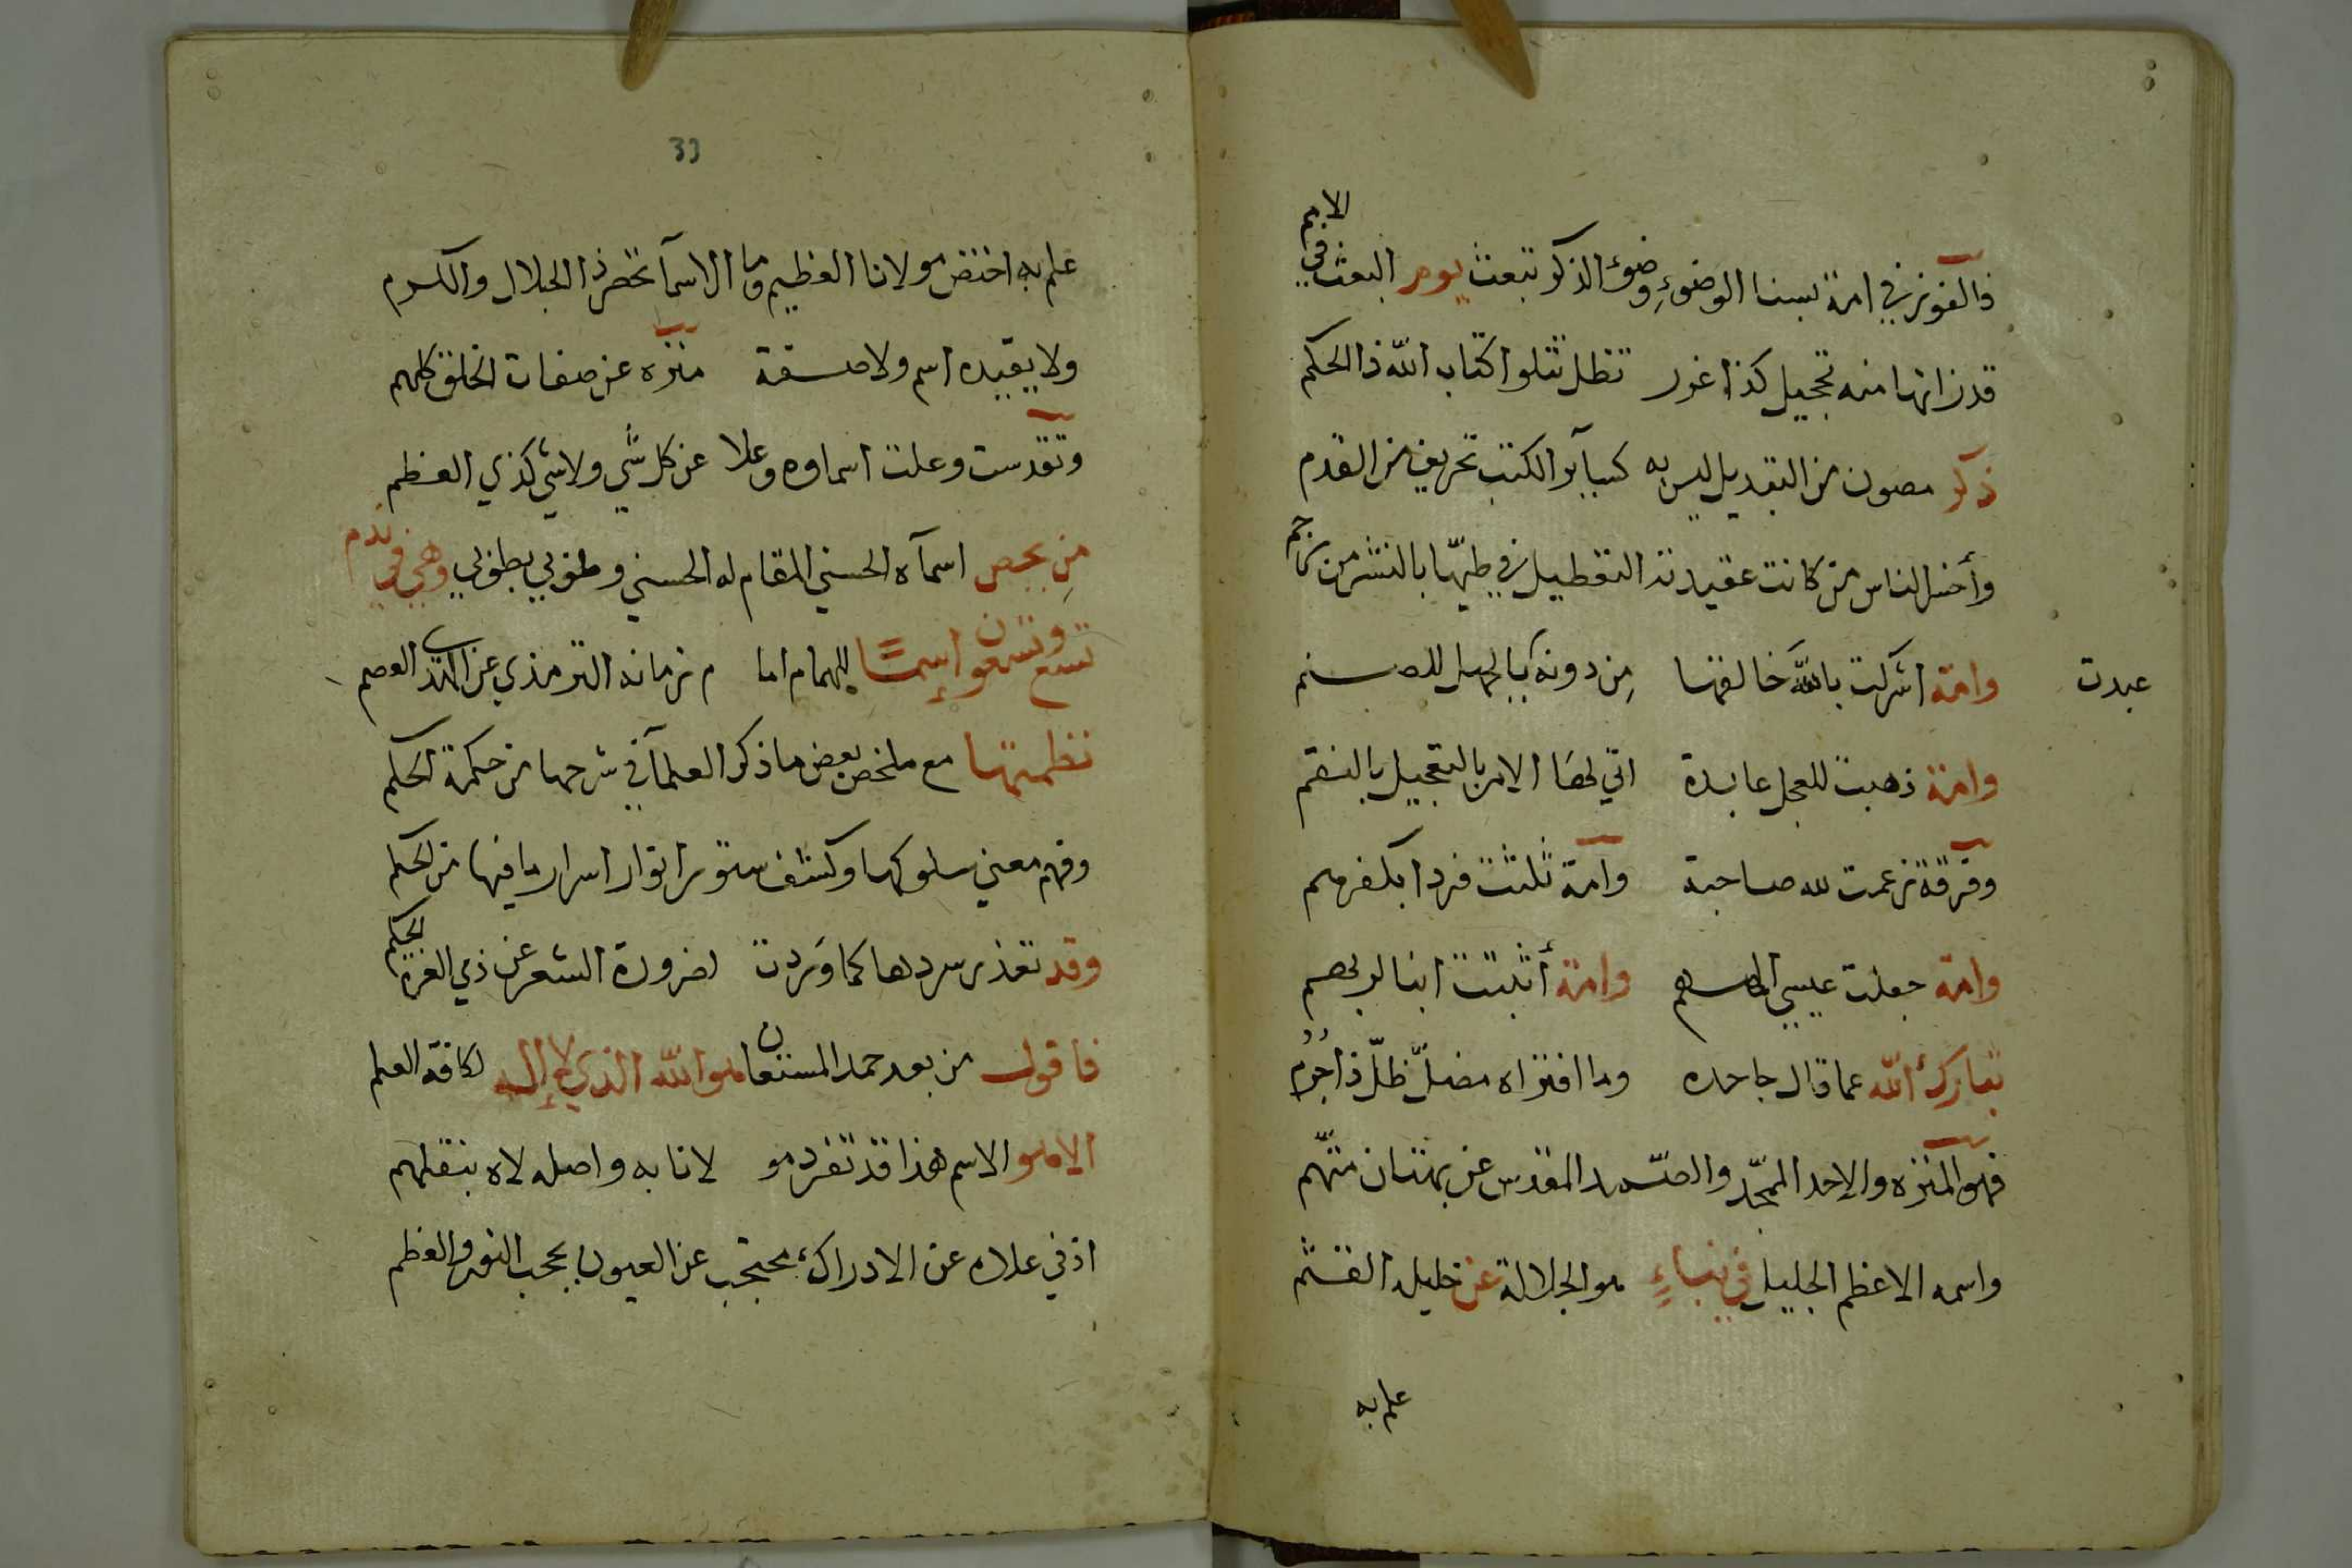 فالفوز في امة بسنا الوضوءِ وضوء الذكر تبعث يوم البعث في الامم
قد زانها منه تحجيل كذا غرر تظل تتلوا كتاب الله ذا الحكم
ذكر مصون من التبديل ليس به كسآير الكتب تحريف من القدم
وأخسر الناس من كانت عقيدته التعطيل في طيّها بالنشر من
وامة اشركت بالله خالقها مِن دونه بالجهل للصنم
عبدت
وامة ذهبت للعجل عابدة اتي لها الامر بالتعجيل بالنقم
وفرقة زعمت لله صاحبة وامة ثلثت فردا بكفرهم
وامة جعلت عيسي الههم وامة أثبتت ابنا لربهم
تبارك الله عما قال جاحده وما افتراه مضلّ ظلّ ذا جُرُم
فهو المنزه والاحد الممجّد والصّمد المقدس عن بهتان متّهم
واسمه الاعظم الجليل في نباءٍ هو الجلالة عن خليله القثم
علم به
33
علم به اختص مولانا العظيم وما الاسمآ تحصر ذا الجلال والكرم
ولا يقيده اسم ولا صفة منزه عن صفات الخلق كلهم
وتقدست وعلت اسماوه وعلا عن كل شي ولا شي كذي العظم
مِن بحص اسمآه الحسني المقام له الحسني وطوبي بطوبي وهي في
تسع وتسعون إسمًا للهمام اما م زمانه الترمذي عن العصم
نظمتها مع ملخص بعض ما ذكر العلمآ في شرحها من حكمة الحكم
وفهم معني سلوكها وكشف ستور انوار اسرار ما فيها من الحكم
وقد تعذر سردها كما وَردت لضرورة الشعر عن ذي العزة الحكم
فاقول من بعد حمد المستعان هو الله الذي لا إله لكافة العلم
الا هو الاسم هذا قد تفرد مو لانا به واصله لاه بنقلهم
اذ في علاه عن الادراك محتجب عن العيون بحجب النور والعظم